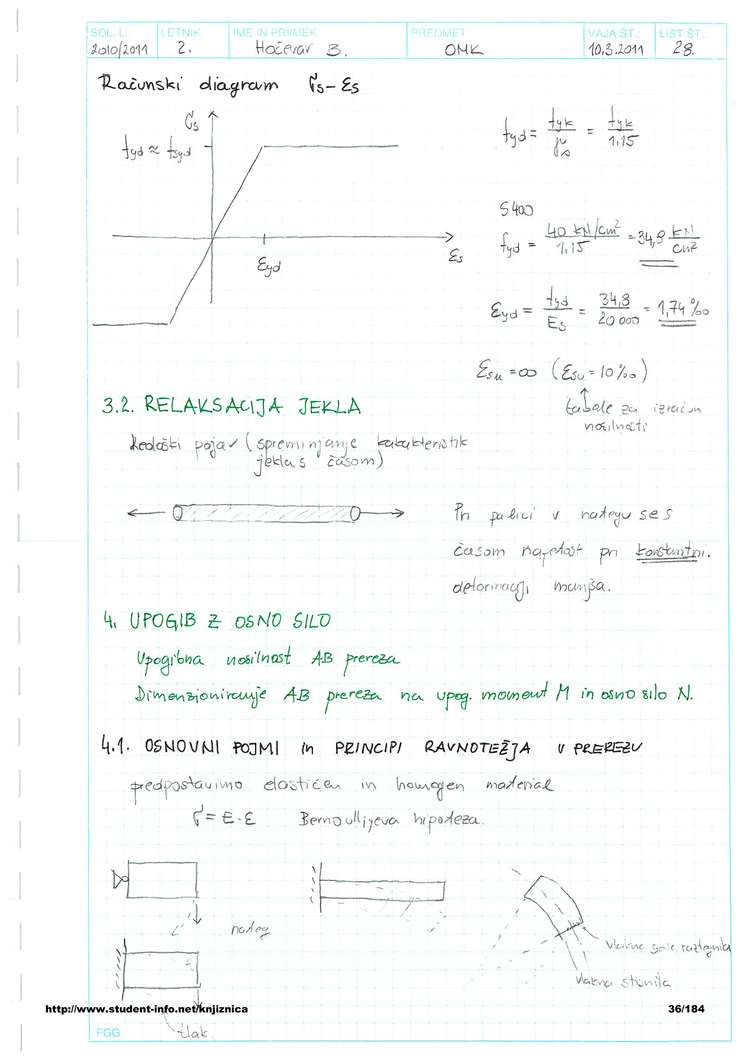 ŠOL. L. LETNIK IME IN PRIIMEK PREDMET VAJA ŠT.: LIST ŠT.
2010/2011 2. Hočevar B. OMK 10.3.2011 28.
Računski diagram σs-εs
σs
fyd ≈ fsyd
εs
εyd
fyd = fyk/γs = fyk/1,15
S400
fyd = 40 kN/cm²/1,15 = 34,8 kN/cm²
εyd = fyd/Es = 34,8/20 000 = 1,74 ‰
εsu = ∞ (εsu = 10‰)
tabele za izračun
nosilnosti
3.2. RELAKSACIJA JEKLA
Reološki pojav (spreminjanje karakteristik
jekla s časom)
Pri palici v nategu se s
časom napetost pri konstantni.
deformaciji manjša.
4. UPOGIB Z OSNO SILO
Upogibna nosilnost AB prereza
Dimenzioniranje AB prereza na upog. moment M in osno silo N.
4.1. OSNOVNI POJMI in PRINCIPI RAVNOTEŽJA V PREREZU
predpostavimo elastičen in homogen material
σ = E·ε Bernoullijeva hipoteza.
nateg
vlakna so se raztegnila
vlakna stisnila
tlak
http://www.student-info.net/knjiznica
36/184
FGG